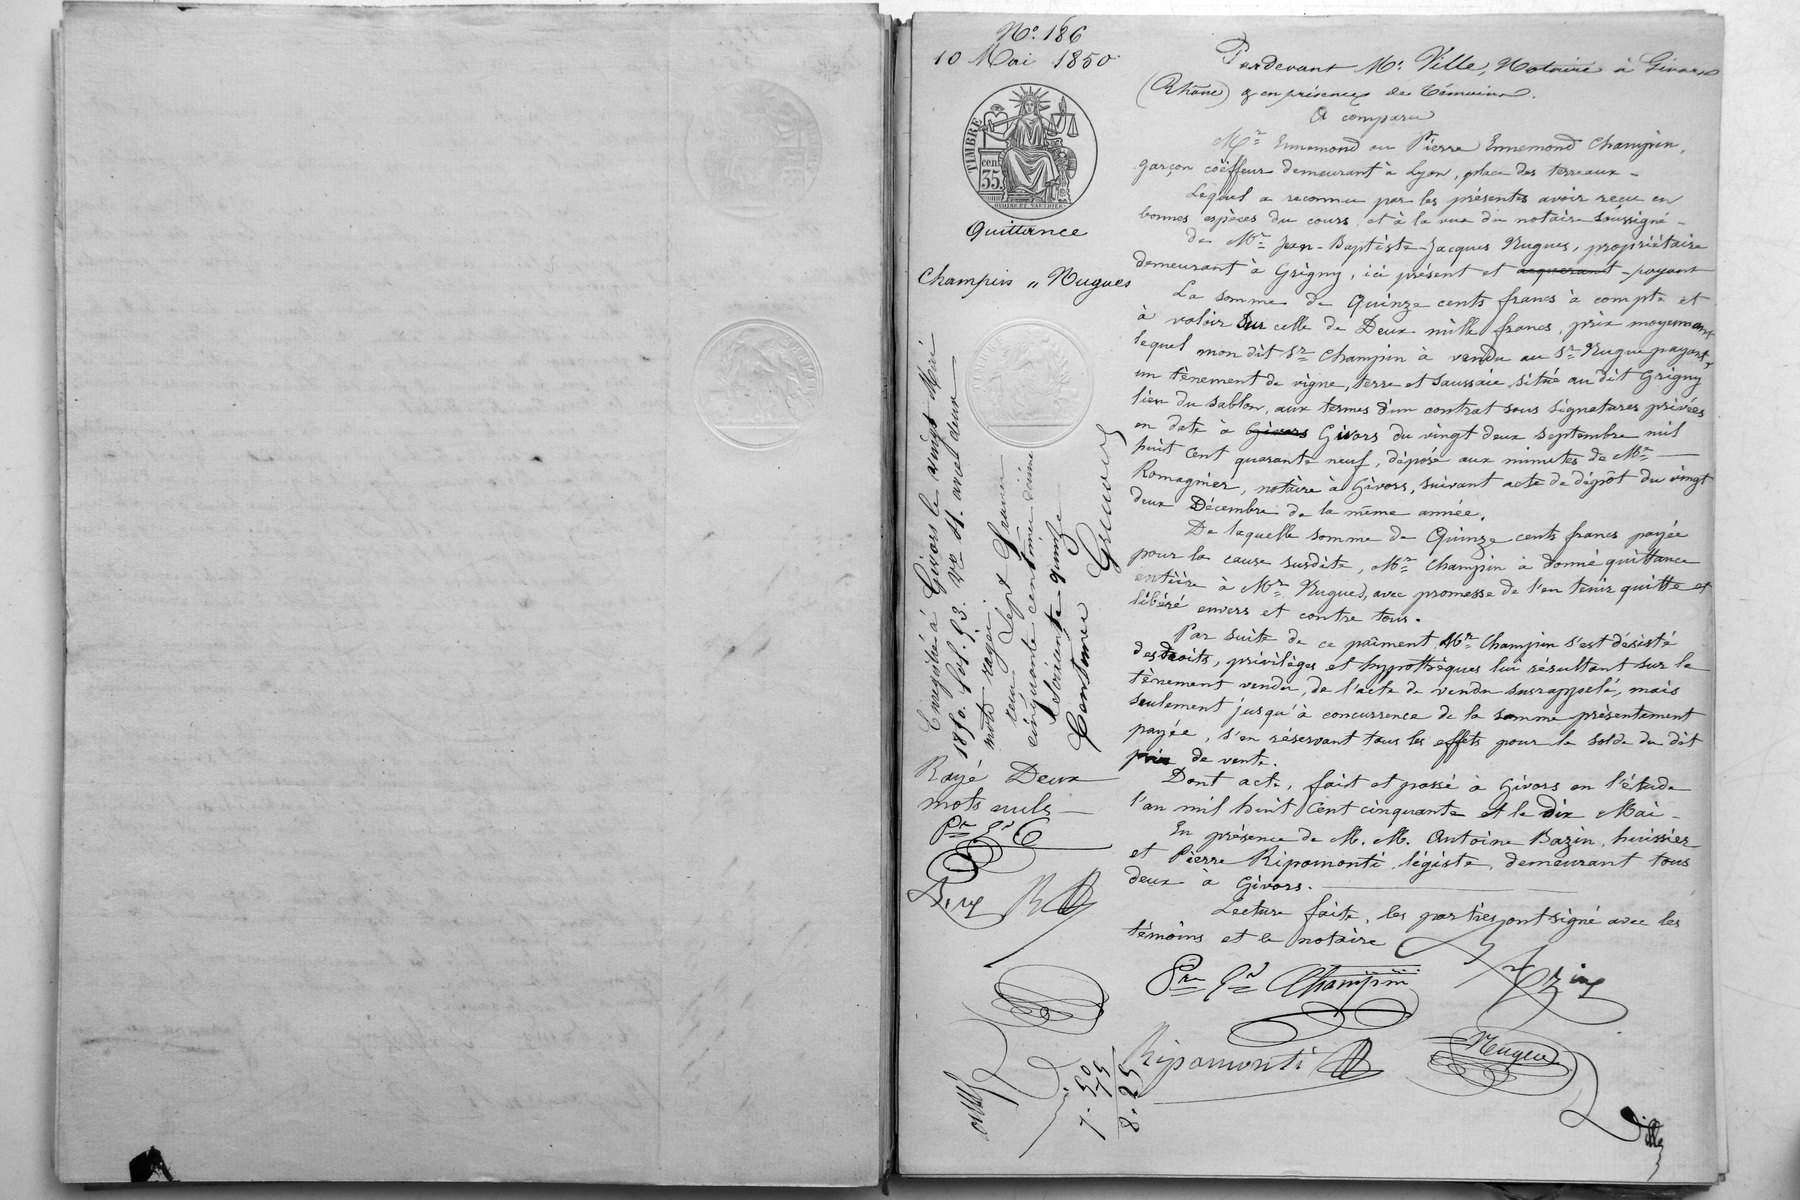 Nº. 186
10 Mai 1850
TIMBRE
cen.
35.
OUDINE ET VAUTHIER
Quittance
Champin " Nugues
Pardevant Me. Ville, Notaire à Givors
(Rhône) & en présence de témoins.
A comparu
Mr. Ennemond ou Pierre Ennemond Champin,
garçon coëffeur demeurant à Lyon, place des terreaux -
Lequel a reconnu par les présentes avoir reçu en
bonnes espèces du cours, et à la vue du notaire soussigné -
de Mr. Jean-Baptiste-Jacques Nugues, propriétaire
demeurant à Grigny, ici présent et acquerant - payant
La somme de Quinze cents francs à compte et
à valoir sur celle de Deux mille francs, prix moyennant
lequel mon dit Sr. Champin à vendu au Sr. Nugue payant,
un tênement de vigne, terre et saussaie situé au dit Grigny
lieu du sablon, aux termes d'un contrat sous signatures privées
en date à Givors Givors du vingt deux septembre mil
huit cent quarante neuf, déposé aux minutes de Me. —
Romagnier, notaire à Givors, suivant acte de dépôt du vingt
deux Décembre de la même année.
De laquelle somme de Quinze cents francs payée
pour la cause susdite, Mr. Champin à donné quittance
entière à Mr. Nugues, avec promesse de l'en tenir quitte et
libéré envers et contre tous.
Par suite de ce paîment Mr. Champin s'est désisté
des droits, privilèges et hypothèques lui résultant sur le
tènement vendu, de l'acte de vendu susrappelé, mais
seulement jusqu'à concurrence de la somme présentement
payée, s'en réservant tous les effets pour le solde du dit
prix de vente.
Dont acte, fait et passé à Givors en l'étude
l'an mil huit cent cinquante et le dix Mai -
En présence de M. M. Antoine Bazin, huissier
et Pierre Ripamonti légiste, demeurant tous
deux à Givors.
Lecture faite, les parties ont signé avec les
témoins et le notaire
Enregistré à Givors le vingt Mai
1850. fol. 93. Vo. C1. avec deux
mots rayés.
reçu Sept francs
cinquante centimes décime
soixante quinze
centimes
Rayé Deux
mots nuls —
Pre. Gd. C
Pre. Gd. Champin
Bazin
Ripamonti
Nugues
Ville
7. 50
75
8. 25